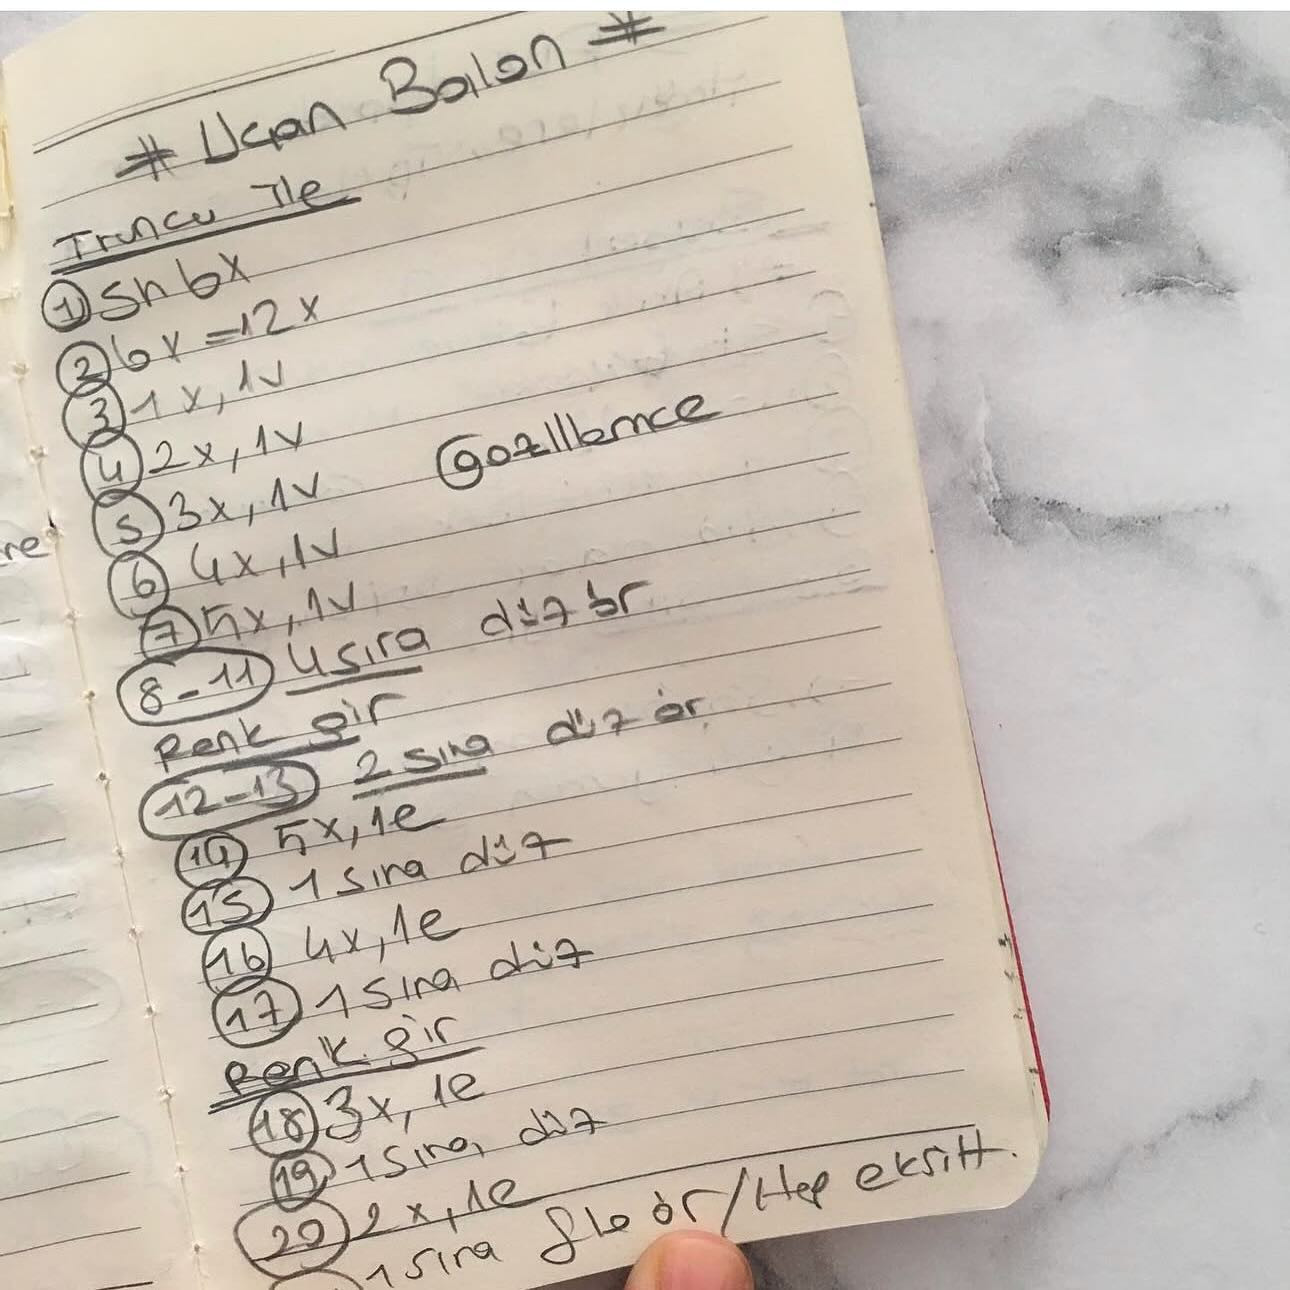 # Uçan Balon #
Truncu Ile
1 Sh 6x
2 6x = 12x
3 1x, 1v
4 2x, 1v
5 3x, 1v
gozlllemce
6 4x, 1v
7 5x, 1v
8-11 4 sıra düz ör
Renk gir
12-13 2 sıra düz ör
14 5x, 1e
15 1 sıra düz
16 4x, 1e
17 1 sıra düz
Renk gir
18 3x, 1e
19 1 sıra düz
20 2x, 1e
1 sıra ör / Hep eksilt.
re